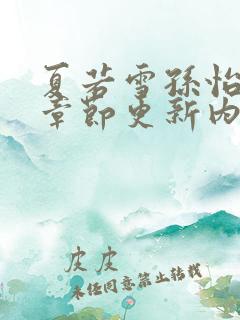 夏若雪孙怡
章节更新内
皮皮
未经同意禁止转载